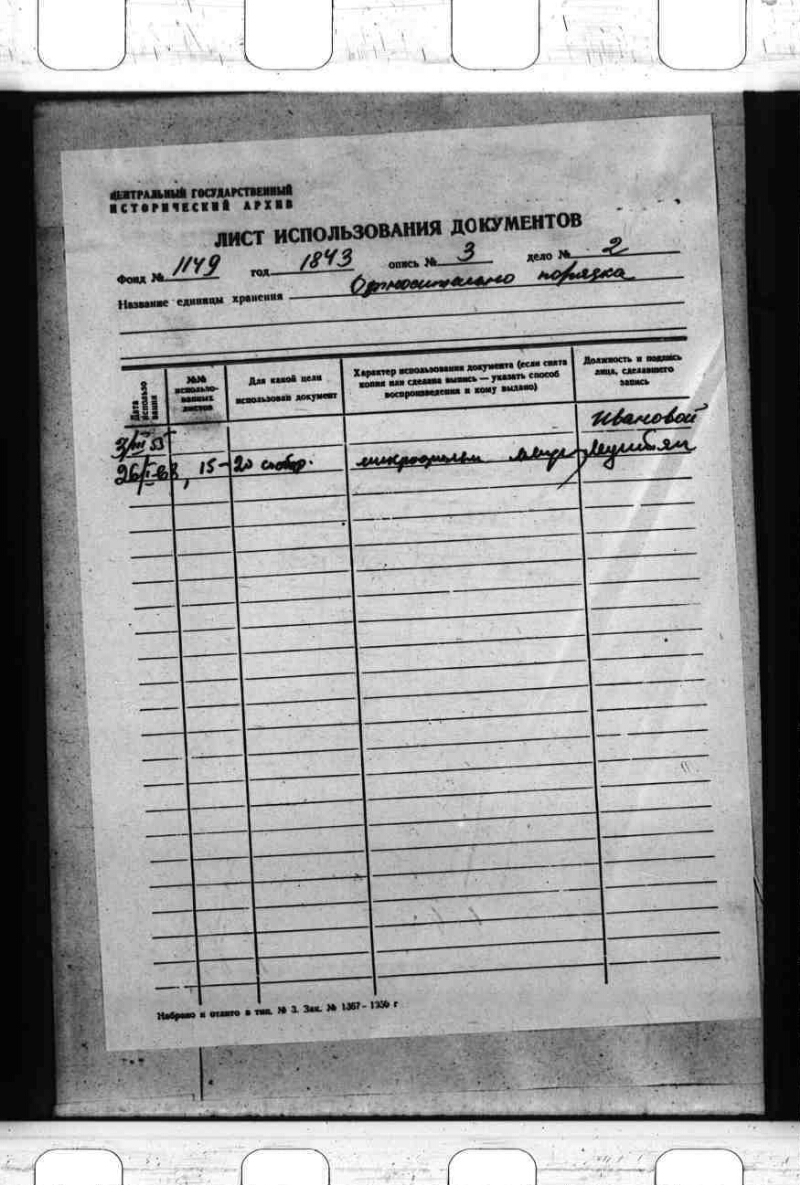 ЦЕНТРАЛЬНЫЙ ГОСУДАРСТВЕННЫЙ
ИСТОРИЧЕСКИЙ АРХИВ
ЛИСТ ИСПОЛЬЗОВАНИЯ ДОКУМЕНТОВ
Фонд № 1149 год 1843 опись № 3 дело № 2
Название единицы хранения Относительно порядка
Дата использования
№№ использованных листов
Для какой цели использован документ
Характер использования документа (если снята копия или сделана выпись — указать способ воспроизведения и кому выдано)
Должность и подпись лица, сделавшего запись
Ивановой
3/III 55
26/I-68, 15-20 микрофильм
Набрано и отлито в тип. № 3. Зак. № 1367-1956 г